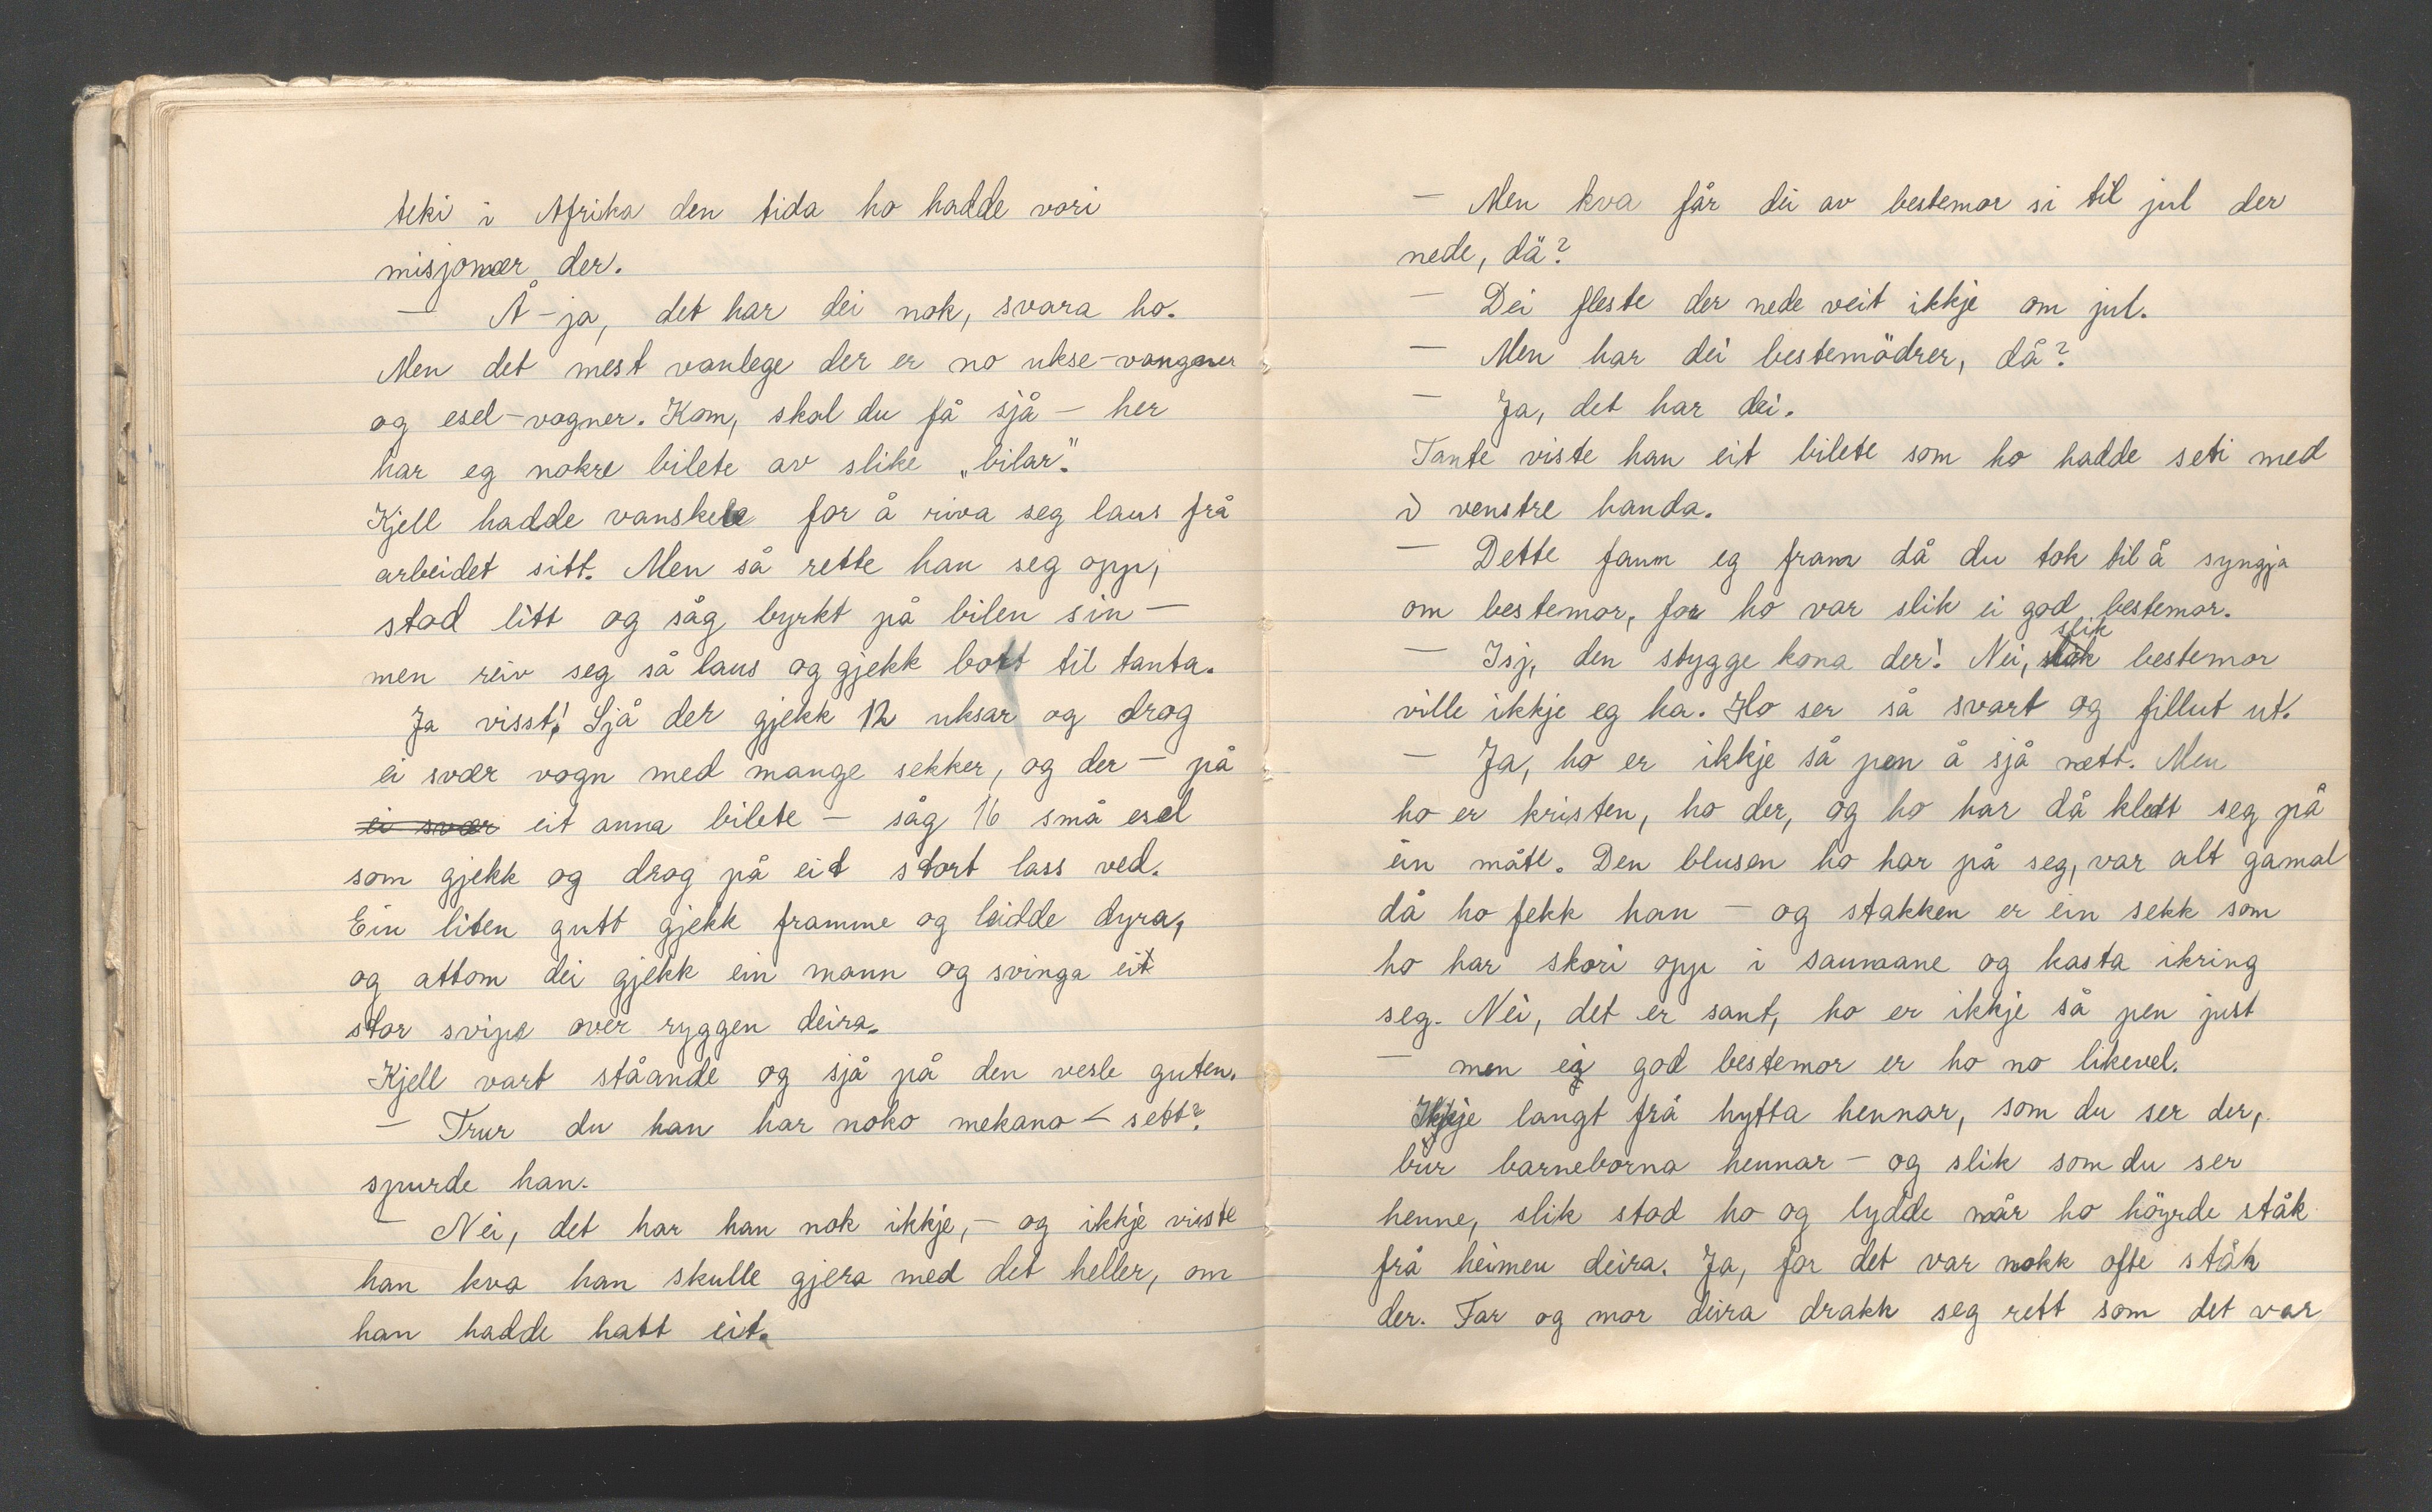 teki i Afrika den tida ho hadde vori
misjonær der.
— Å-ja, det har dei nok, svara ho.
Men det mest vanlege der er no ukse-vangner
og esel-vogner. Kom, skal du få sjå — her
har eg nokre bilete av slike „bilar".
Kjell hadde vanskele for å riva seg laus frå
arbeidet sitt. Men så rette han seg opp,
stod litt og såg byrkt på bilen sin —
men reiv seg så laus og gjekk bort til tanta.
Ja visst! Sjå der gjekk 12 uksar og drog
ei svær vogn med mange sekker, og der — på
ei svær eit anna bilete — såg 16 små esel
som gjekk og drog på eit stort lass ved.
Ein liten gutt gjekk framme og leidde dyra,
og attom dei gjekk ein mann og svinga eit
stor svipe over ryggen deira.
Kjell vart ståande og sjå på den vesle guten.
— Trur du han har noko mekano-sett?
spurde han.
— Nei, det har han nok ikkje, — og ikkje visste
han kva han skulle gjera med det heller, om
han hadde hatt eit.
— Men kva får dei av bestemor si til jul der
nede, då?
— Dei fleste der nede veit ikkje om jul.
— Men har dei bestemödrer, då?
— Ja, det har dei.
Tante viste han eit bilete som ho hadde seti med
i venstre handa.
— Dette fann eg fram då du tok til å syngja
om bestemor, for ho var slik ei god bestemor.
— Isj, den stygge kona der! Nei, slik bestemor
ville ikkje eg ha. Ho ser så svart og fillut ut.
— Ja, ho er ikkje så pen å sjå nett. Men
ho er kristen, ho der, og ho har då kledt seg på
ein måte. Den blusen ho har på seg, var alt gamal
då ho fekk han — og stakken er ein sekk som
ho har skori opp i saumane og kasta ikring
seg. Nei, det er sant, ho er ikkje så pen just
— men ei god bestemor er ho no likevel.
Ikkje langt frå hytta hennar, som du ser der,
bur barneborna hennar — og slik som du ser
henne, slik stod ho og lydde når ho höyrde ståk
frå heimen deira. Ja, for det var nokk ofte ståk
der. Far og mor deira drakk seg rett som det var